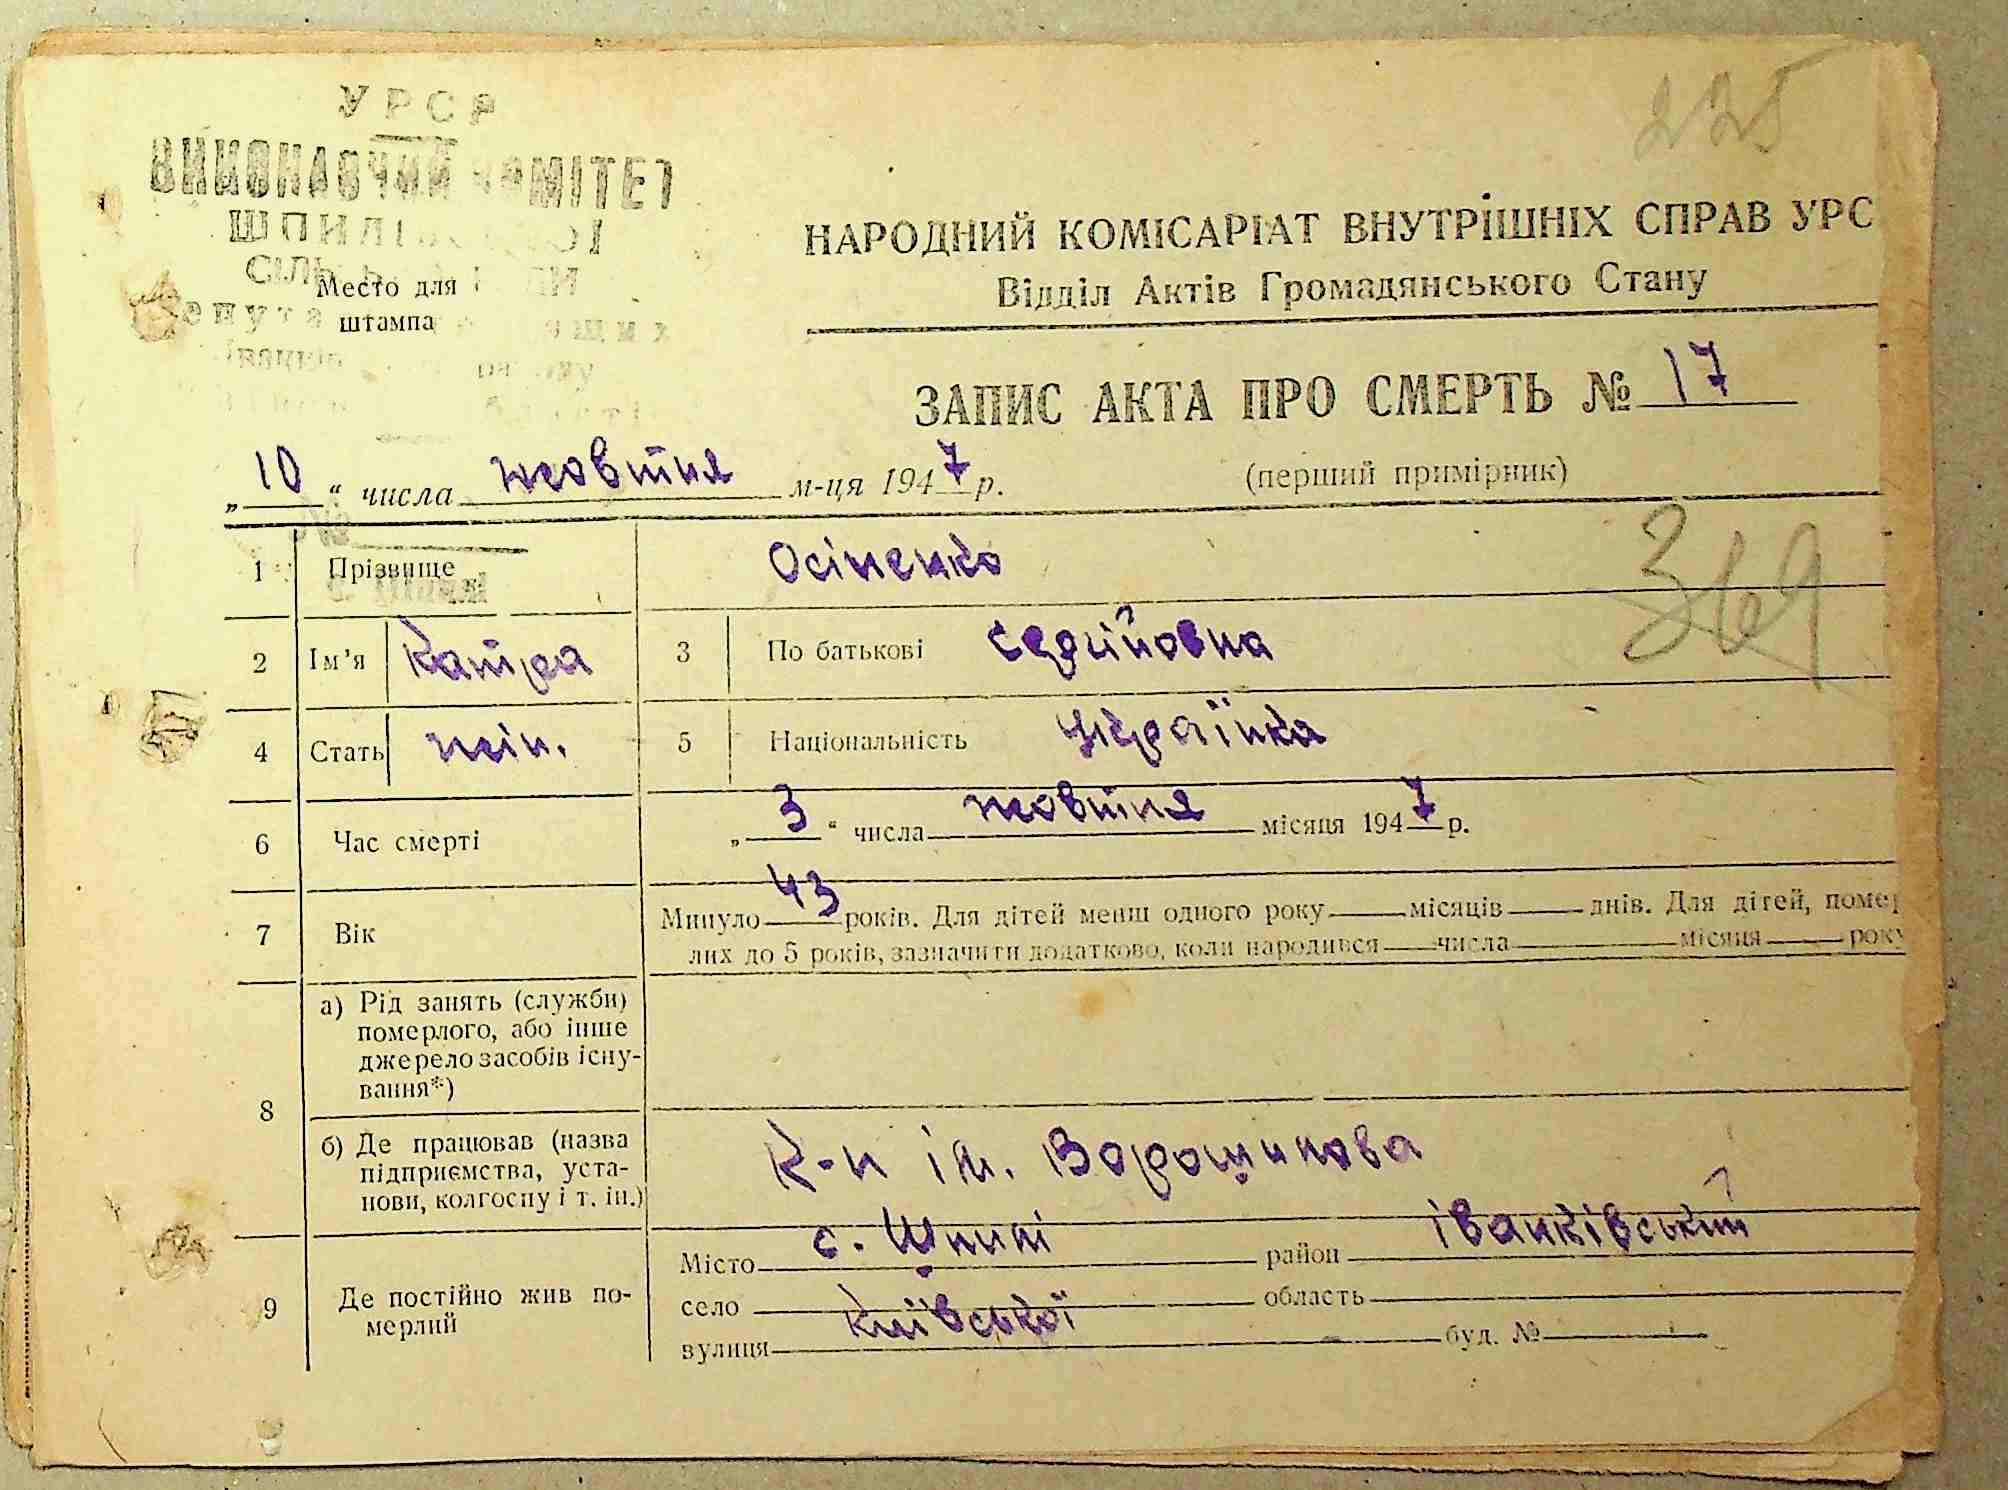 225
УРСР
ВИКОНАВЧИЙ КОМІТЕТ
Место для
штампа
НАРОДНИЙ КОМІСАРІАТ ВНУТРІШНІХ СПРАВ УРС
Відділ Актів Громадянського Стану
ЗАПИС АКТА ПРО СМЕРТЬ № 17
„10“ числа жовтня м-ця 1947 р. (перший примірник)
369
1 Прізвище Осіпенко
2 Ім'я Катра 3 По батькові Сергійовна
4 Стать жін. 5 Національність Українка
6 Час смерті „3“ числа жовтня місяця 1947 р.
7 Вік Минуло 43 років. Для дітей менш одного року місяців днів. Для дітей, помер
лих до 5 років, зазначити додатково, коли народився числа місяця року
8 а) Рід занять (служби)
померлого, або інше
джерело засобів існу-
вання*)
б) Де працював (назва
підприємства, уста-
нови, колгоспу і т. ін.)
К-п ім. Ворошилова
9 Де постійно жив по-
мерлий
Місто с. Шпилі район Іванківський
село Київської область
вулиця буд. №